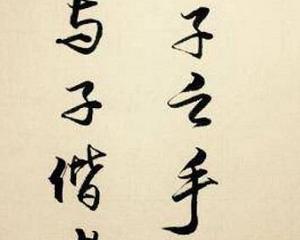 子之手
与子偕